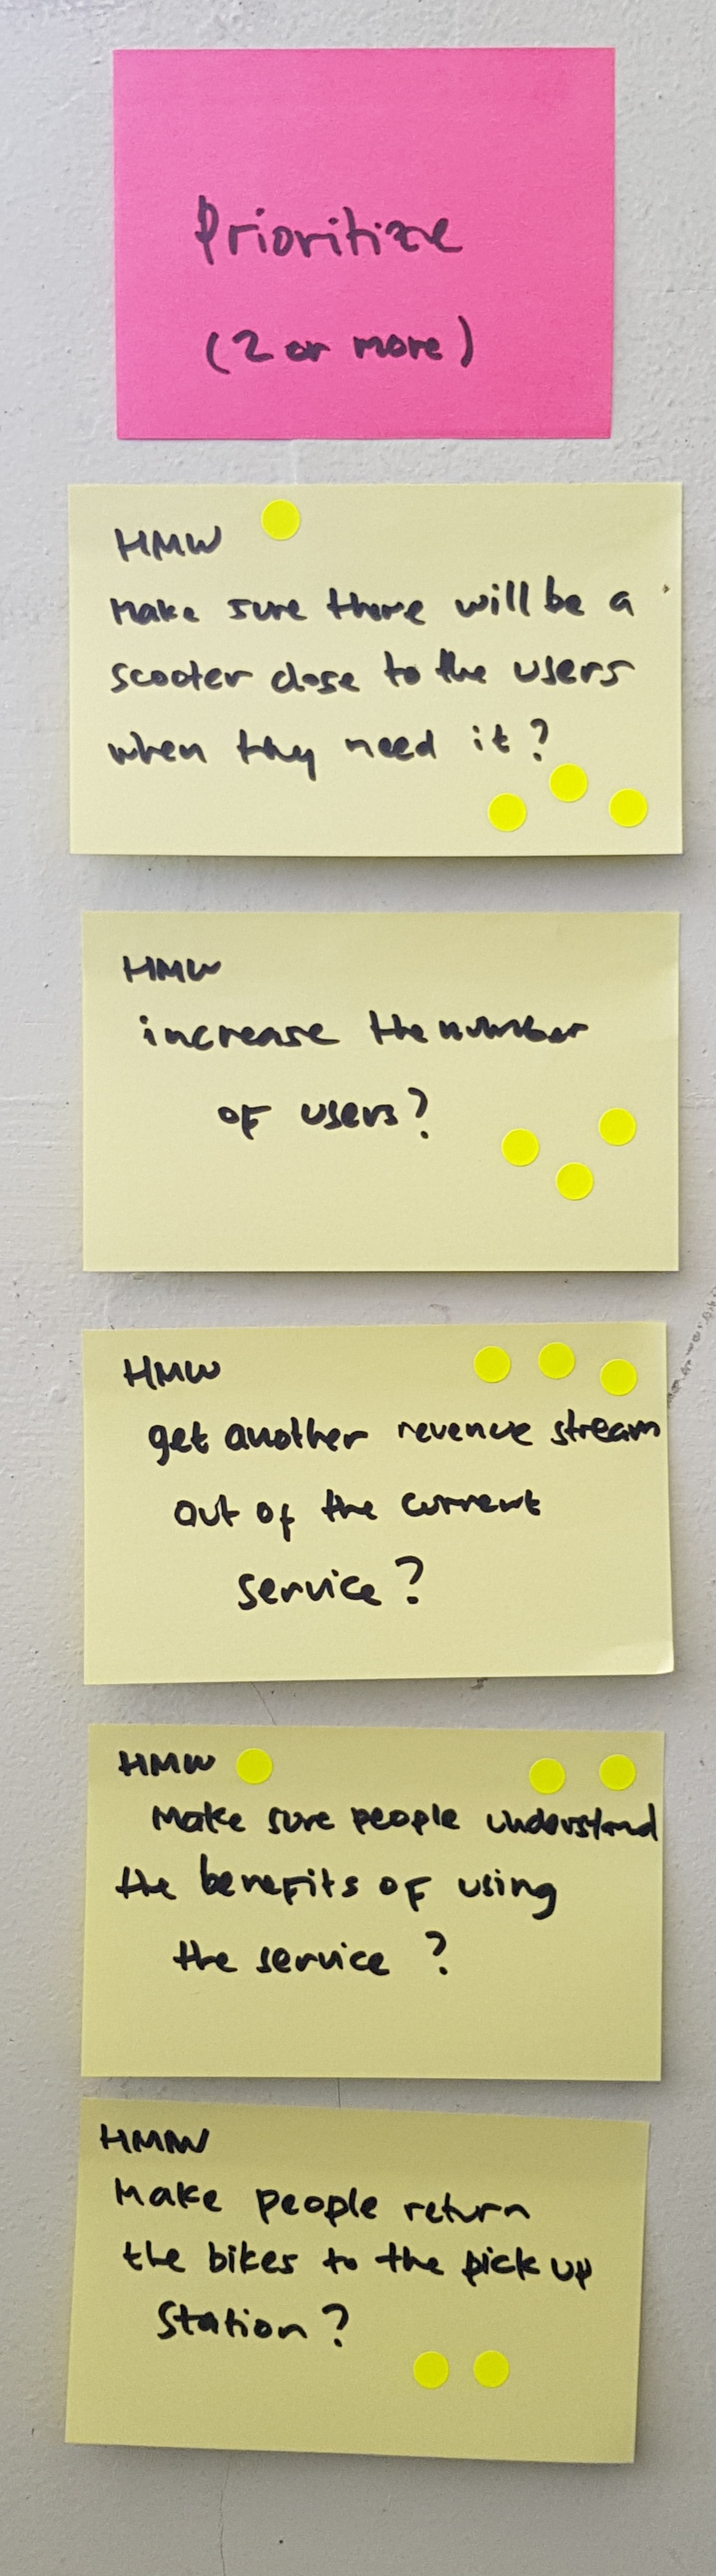 Prioritize
(2 or more)
HMW
Make sure there will be a
scooter close to the users
when they need it?
HMW
increase the number
of users?
HMW
get another revenue stream
out of the current
service?
HMW
Make sure people understand
the benefits of using
the service?
HMW
Make people return
the bikes to the pick up
Station?